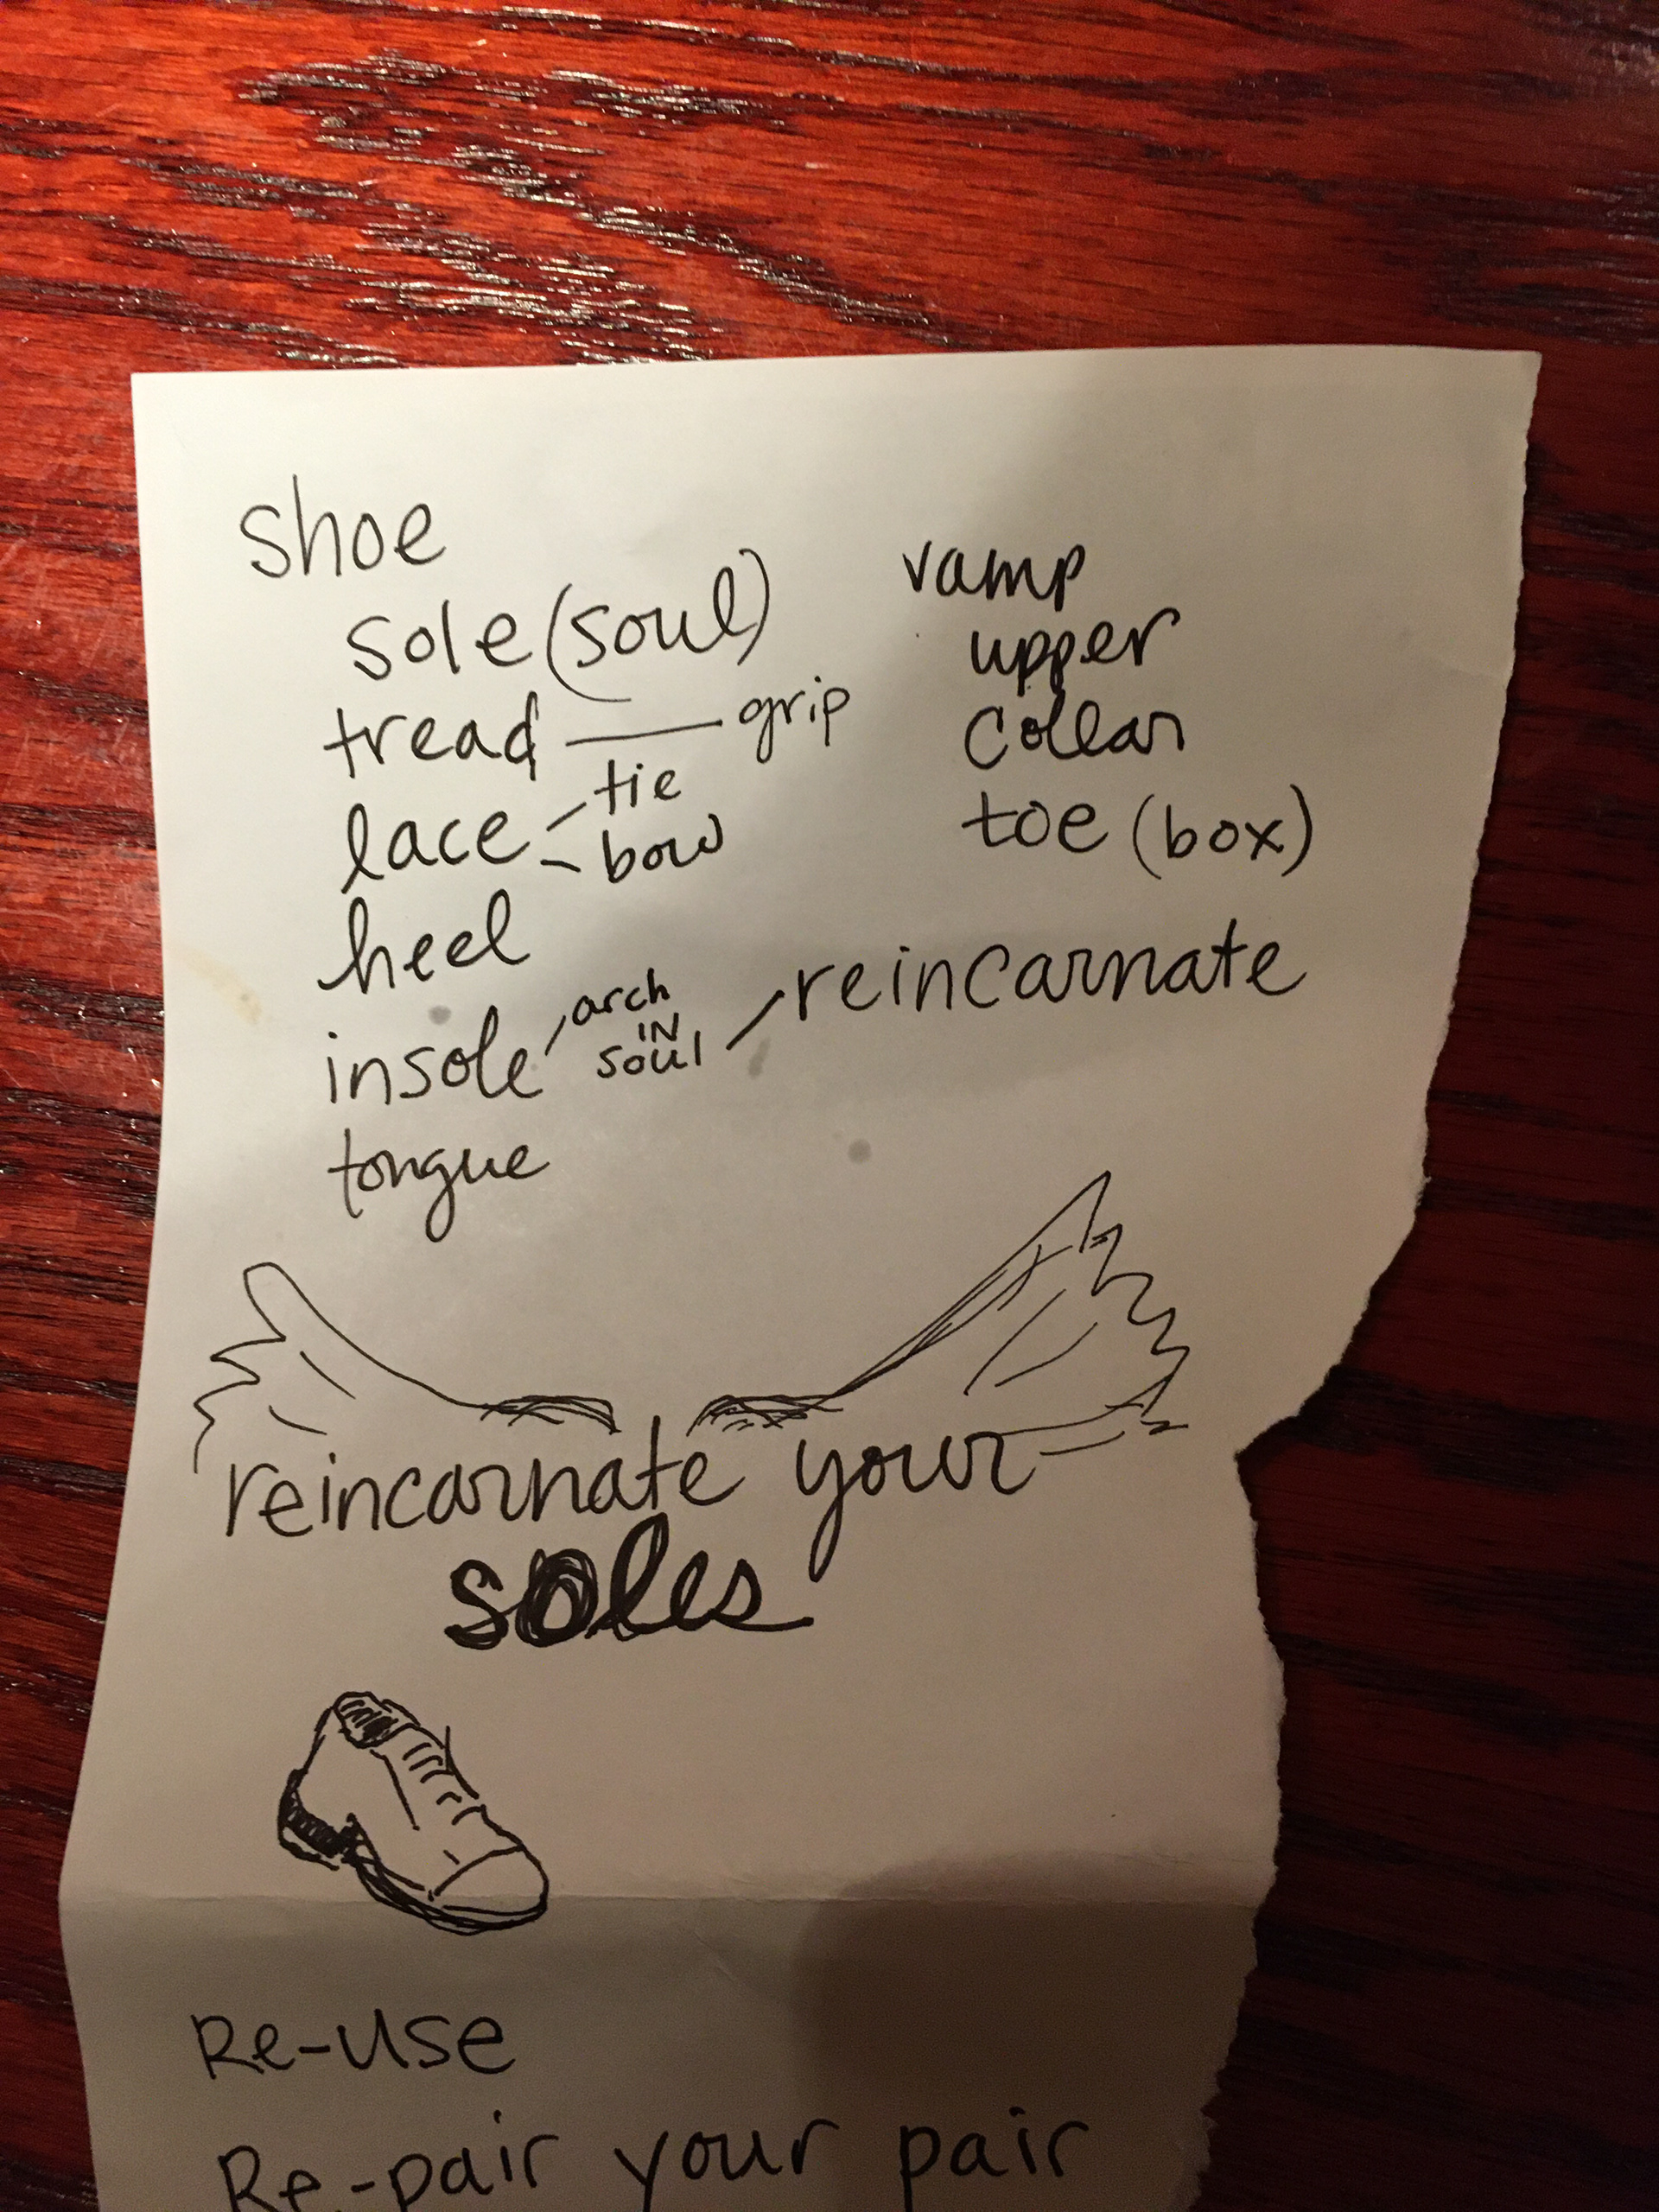 shoe
sole (soul)
tread — grip
lace - tie
- bow
heel
insole / arch
IN
soul / reincarnate
tongue
vamp
upper
collar
toe (box)
reincarnate your
soles
Re-use
Re-pair your pair